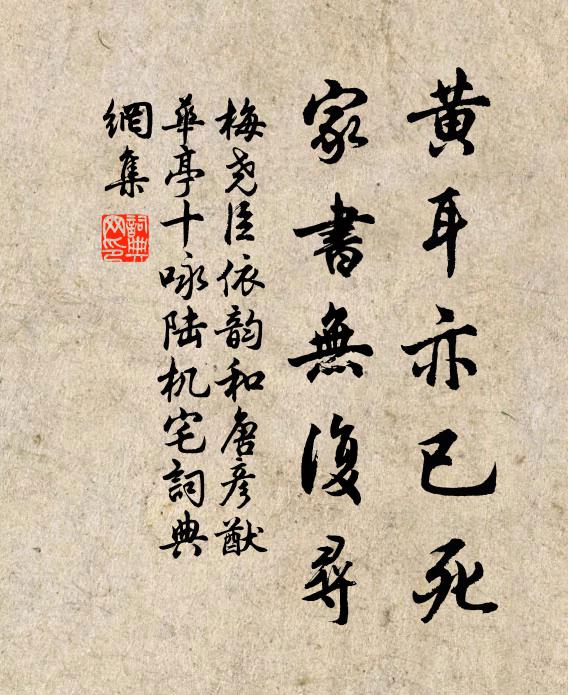 黃耳亦已死
家書無復尋
梅尧臣依韵和唐彦猷
華亭十咏陆机宅詞典
網集
詞典网印